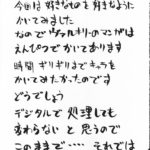 今回は好きなものを好きなように
かいてみました
なのでヴァルキリーのマンガは
えんぴつでかいてあります
時間ギリギリまでキャラを
かいてみたかったのです
どうでしょう
デジタルで処理しても
変わらないと思うので
このままで・・・・それでは